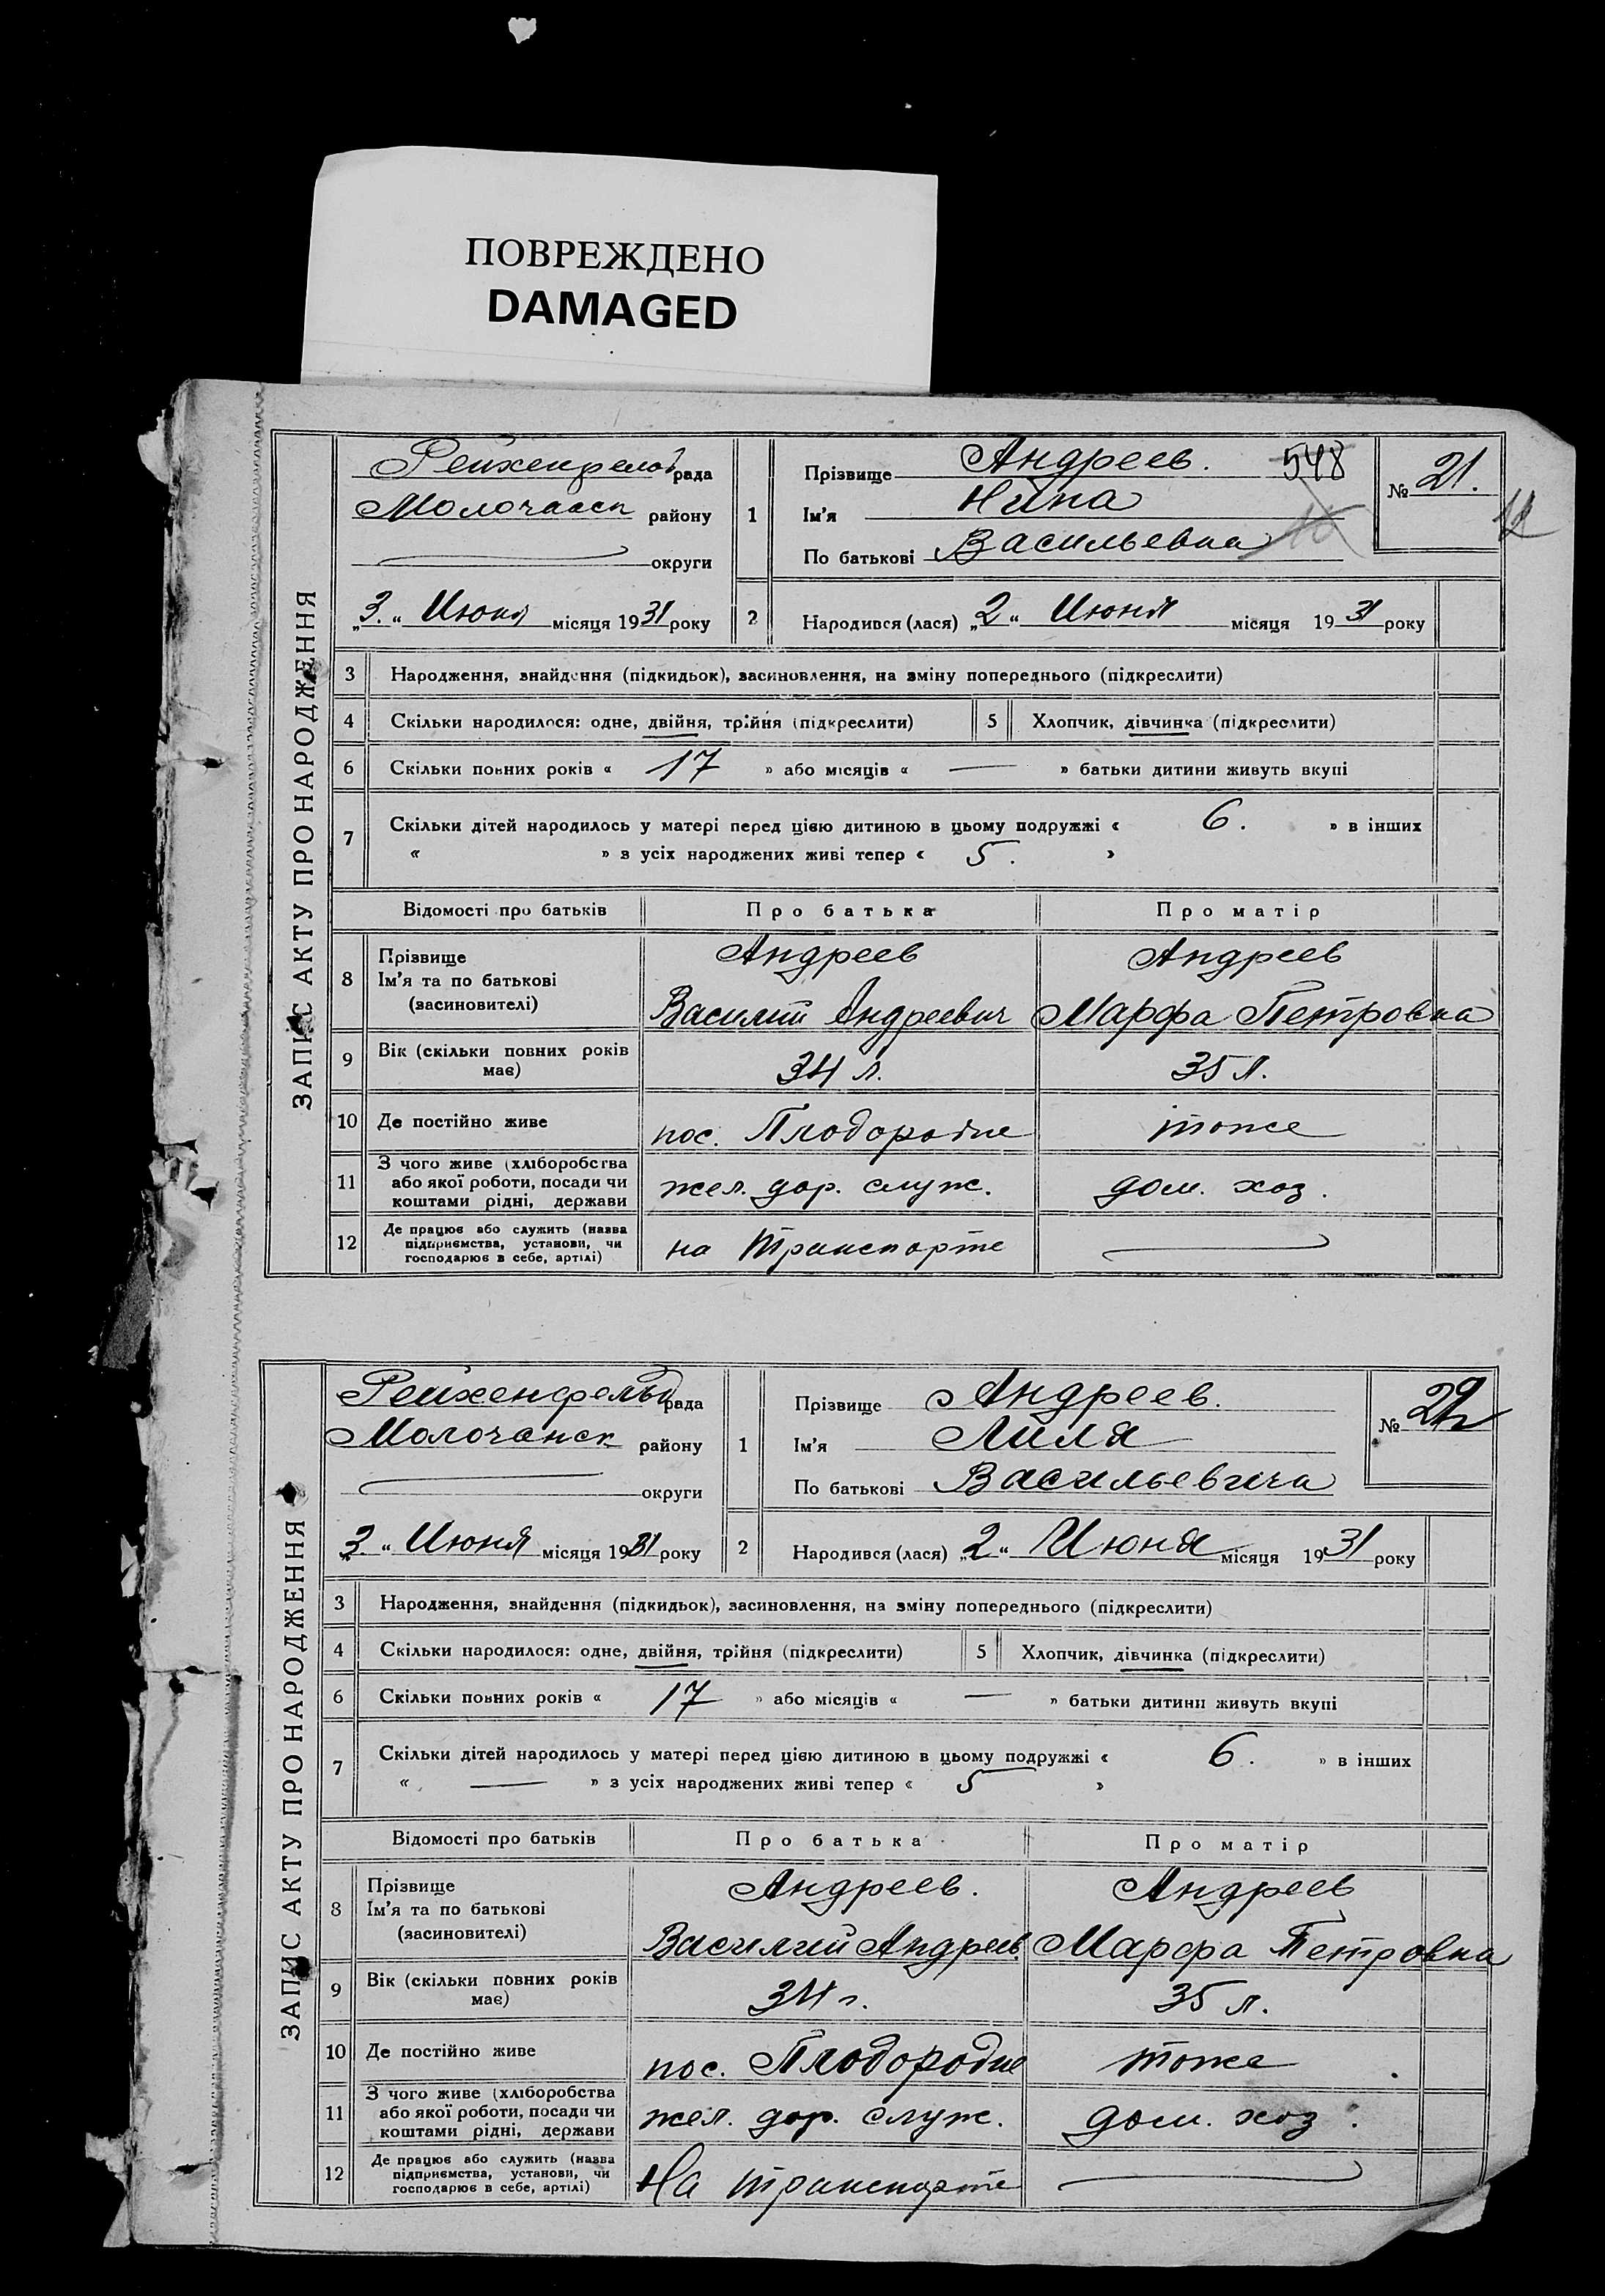 ПОВРЕЖДЕНО
DAMAGED
ЗАПИС АКТУ ПРО НАРОДЖЕННЯ
Рейхенфельд рада
Молочанск району
округи
„3.“ Июня місяця 1931 року
1
Прізвище Андреев. 548
Ім'я Нина
По батькові Васильевна
№ 21.
12
2 Народився (лася) „2“ Июня місяця 1931 року
3 Народження, знайдення (підкидьок), засиновлення, на зміну попереднього (підкреслити)
4 Скільки народилося: одне, двійня, трійня (підкреслити) 5 Хлопчик, дівчинка (підкреслити)
6 Скільки повних років « 17 » або місяців « — » батьки дитини живуть вкупі
7 Скільки дітей народилось у матері перед цією дитиною в цьому подружжі « 6. » в інших
« » з усіх народжених живі тепер « 5. »
Відомості про батьків Про батька Про матір
8 Прізвище Андреев Андреев
Ім'я та по батькові
(засиновителі) Василий Андреевич Марфа Петровна
9 Вік (скільки повних років
має) 34 л. 35 л.
10 Де постійно живе пос. Плодородие тоже
11 З чого живе (хліборобства
або якої роботи, посади чи
коштами рідні, держави жел. дор. служ. дом. хоз.
12 Де працює або служить (назва
підприємства, установи, чи
господарює в себе, артілі) на транспорте
ЗАПИС АКТУ ПРО НАРОДЖЕННЯ
Рейхенфельд рада
Молочанск району
округи
„3.“ Июня місяця 1931 року
1
Прізвище Андреев.
Ім'я Лиля
По батькові Васильевича
№ 22
2 Народився (лася) „2“ Июня місяця 1931 року
3 Народження, знайдення (підкидьок), засиновлення, на зміну попереднього (підкреслити)
4 Скільки народилося: одне, двійня, трійня (підкреслити) 5 Хлопчик, дівчинка (підкреслити)
6 Скільки повних років « 17 » або місяців « — » батьки дитини живуть вкупі
7 Скільки дітей народилось у матері перед цією дитиною в цьому подружжі « 6. » в інших
« — » з усіх народжених живі тепер « 5 »
Відомості про батьків Про батька Про матір
8 Прізвище Андреев. Андреев
Ім'я та по батькові
(засиновителі) Василий Андреев. Марфа Петровна
9 Вік (скільки повних років
має) 34 г. 35 л.
10 Де постійно живе пос. Плодородие тоже
11 З чого живе (хліборобства
або якої роботи, посади чи
коштами рідні, держави жел. дор. служ. дом. хоз.
12 Де працює або служить (назва
підприємства, установи, чи
господарює в себе, артілі) На транспорте